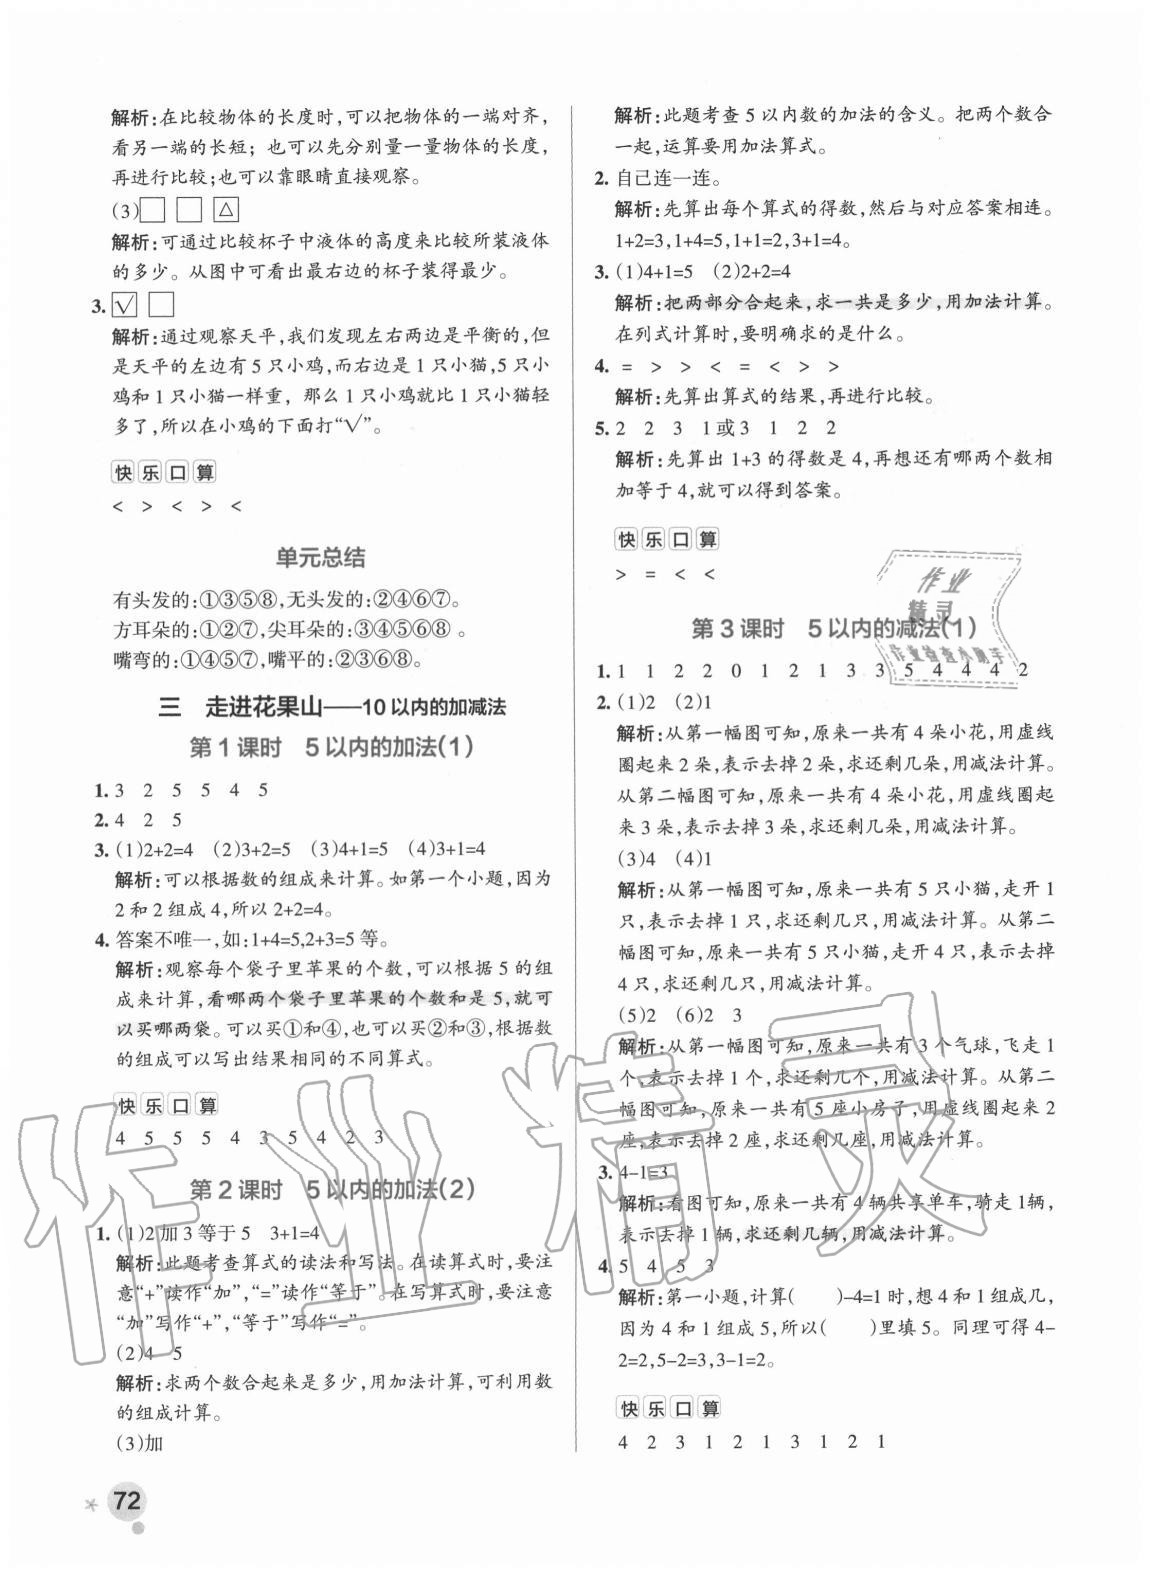 解析:在比较物体的长度时,可以把物体的一端对齐,
看另一端的长短;也可以先分别量一量物体的长度,
再进行比较;也可以靠眼睛直接观察。
(3)□ □ △
解析:可通过比较杯子中液体的高度来比较所装液体
的多少。从图中可看出最右边的杯子装得最少。
3. √ □
解析:通过观察天平,我们发现左右两边是平衡的,但
是天平的左边有5只小鸡,而右边是1只小猫,5只小
鸡和1只小猫一样重,那么1只小鸡就比1只小猫轻
多了,所以在小鸡的下面打“√”。
快乐口算
< > < > <
单元总结
有头发的:①③⑤⑧,无头发的:②④⑥⑦。
方耳朵的:①②⑦,尖耳朵的:③④⑤⑥⑧。
嘴弯的:①④⑤⑦,嘴平的:②③⑥⑧。
三 走进花果山——10以内的加减法
第1课时 5以内的加法(1)
1. 3 2 5 5 4 5
2. 4 2 5
3. (1)2+2=4 (2)3+2=5 (3)4+1=5 (4)3+1=4
解析:可以根据数的组成来计算。如第一个小题,因为
2和2组成4,所以2+2=4。
4. 答案不唯一,如:1+4=5,2+3=5等。
解析:观察每个袋子里苹果的个数,可以根据5的组
成来计算,看哪两个袋子里苹果的个数和是5,就可
以买哪两袋。可以买①和④,也可以买②和③,根据数
的组成可以写出结果相同的不同算式。
快乐口算
4 5 5 5 4 3 5 4 2 3
第2课时 5以内的加法(2)
1. (1)2加3等于5 3+1=4
解析:此题考查算式的读法和写法。在读算式时,要注
意“+”读作“加”,“=”读作“等于”。在写算式时,要注意
“加”写作“+”,“等于”写作“=”。
(2)4 5
解析:求两个数合起来是多少,用加法计算,可利用数
的组成计算。
(3)加
72
解析:此题考查5以内数的加法的含义。把两个数合
一起,运算要用加法算式。
2. 自己连一连。
解析:先算出每个算式的得数,然后与对应答案相连。
1+2=3,1+4=5,1+1=2,3+1=4。
3. (1)4+1=5 (2)2+2=4
解析:把两部分合起来,求一共是多少,用加法计算。
在列式计算时,要明确求的是什么。
4. = > > < = < > >
解析:先算出算式的结果,再进行比较。
5. 2 2 3 1或3 1 2 2
解析:先算出1+3的得数是4,再想还有哪两个数相
加等于4,就可以得到答案。
快乐口算
> = < <
第3课时 5以内的减法(1)
1. 1 1 2 2 0 1 2 1 3 3 5 4 4 4 2
2. (1)2 (2)1
解析:从第一幅图可知,原来一共有4朵小花,用虚线
圈起来2朵,表示去掉2朵,求还剩几朵,用减法计算。
从第二幅图可知,原来一共有4朵小花,用虚线圈起
来3朵,表示去掉3朵,求还剩几朵,用减法计算。
(3)4 (4)1
解析:从第一幅图可知,原来一共有5只小猫,走开1
只,表示去掉1只,求还剩几只,用减法计算。从第二
幅图可知,原来一共有5只小猫,走开4只,表示去掉
4只,求还剩几只,用减法计算。
(5)2 (6)2 3
解析:从第一幅图可知,原来一共有3个气球,飞走1
个,表示去掉1个,求还剩几个,用减法计算。从第二
幅图可知,原来一共有5座小房子,用虚线圈起来2
座,表示去掉2座,求还剩几座,用减法计算。
3. 4-1=3
解析:看图可知,原来一共有4辆共享单车,骑走1辆,
表示去掉1辆,求还剩几辆,用减法计算。
4. 5 4 5 3
解析:第一小题,计算( )-4=1时,想4和1组成几,
因为4和1组成5,所以( )里填5。同理可得4-
2=2,5-2=3,3-1=2。
快乐口算
4 2 3 1 2 1 3 1 2 1
作业
精灵
作业检查小助手
作业精灵